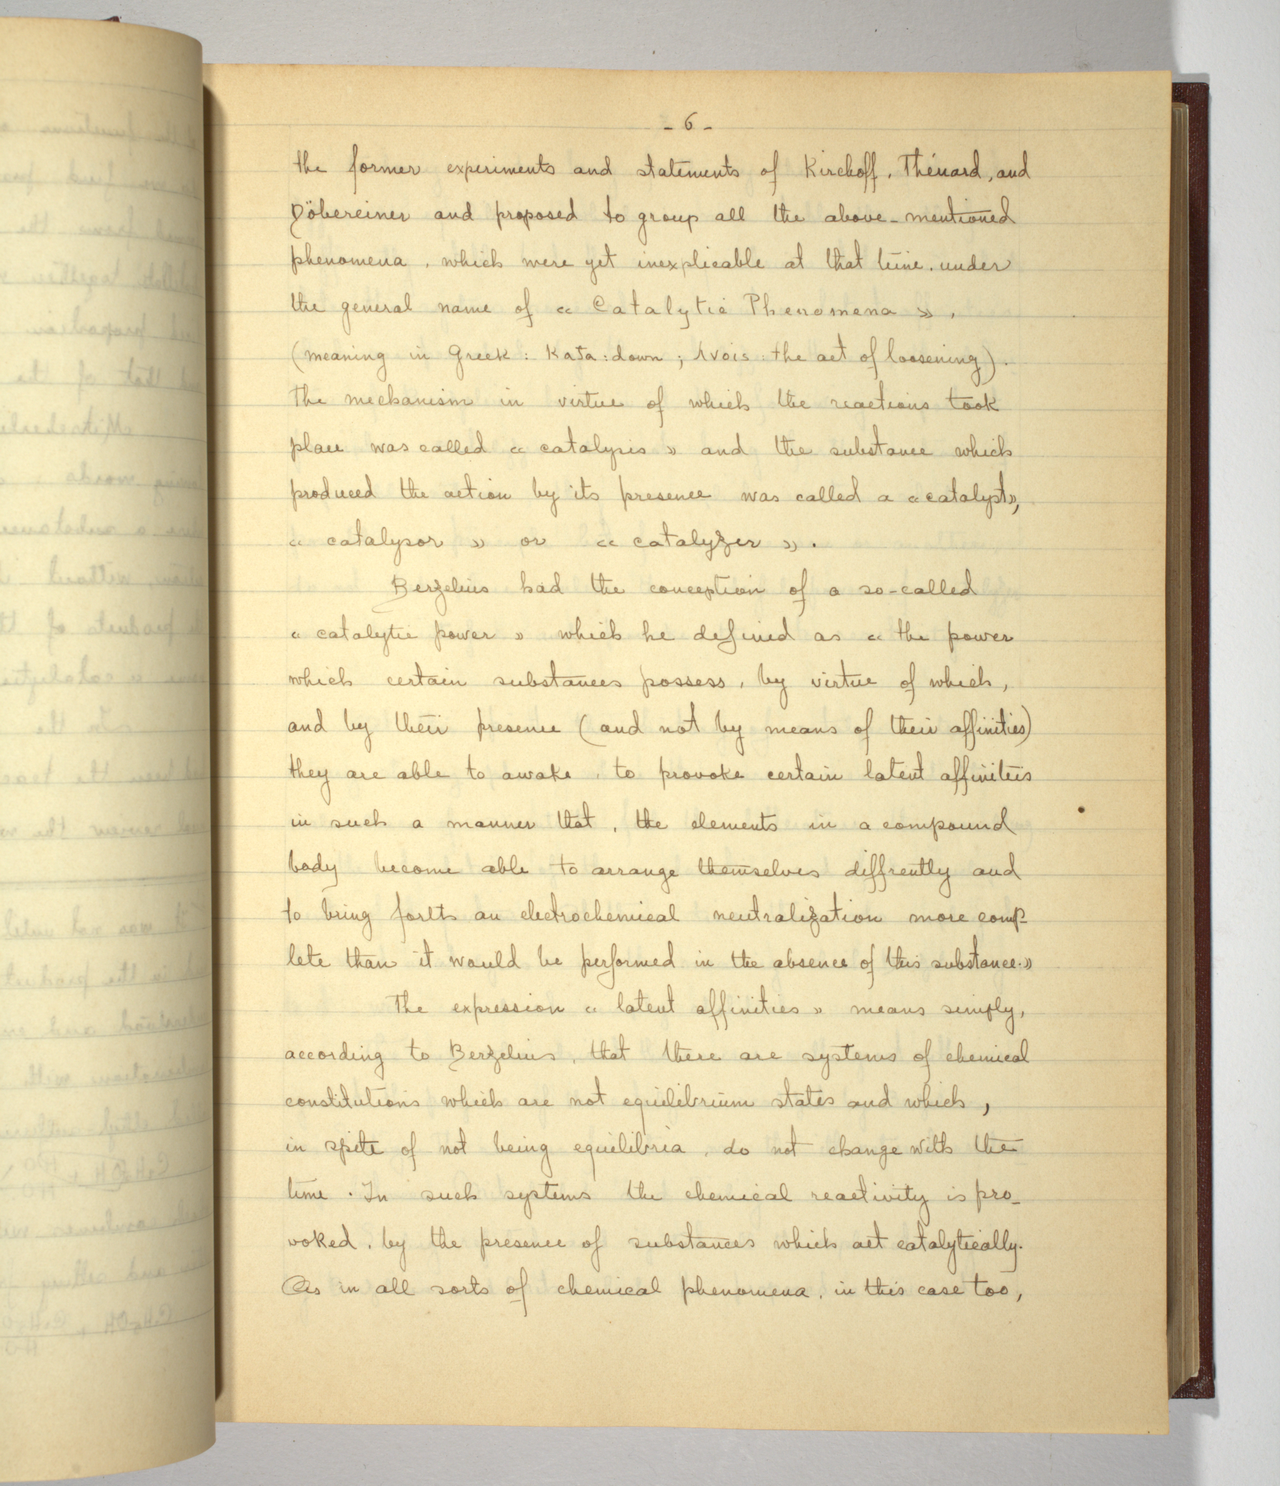 - 6 -
the former experiments and statements of Kirchoff, Thénard, and
Döbereiner and proposed to group all the above-mentioned
phenomena, which were yet inexplicable at that time, under
the general name of « Catalytic Phenomena »,
(meaning in Greek: Kata: down; λvois: the act of loosening).
The mechanism in virtue of which the reactions took
place was called « catalysis » and the substance which
produced the action by its presence was called a « catalyst»,
« catalysor » or « catalyzer ».
Berzelius had the conception of a so-called
« catalytic power » which he defined as « the power
which certain substances possess, by virtue of which,
and by their presence (and not by means of their affinities)
they are able to awake, to provoke certain latent affinities
in such a manner that, the elements in a compound
body become able to arrange themselves diffrently and
to bring forth an electrochemical neutralization more comp-
lete than it would be performed in the absence of this substance.»
The expression « latent affinities » means simply,
according to Berzelius, that there are systems of chemical
constitutions which are not equilibrium states and which,
in spite of not being equilibria, do not change with the
time. In such systems the chemical reactivity is pro-
voked, by the presence of substances which act catalytically.
As in all sorts of chemical phenomena, in this case too,